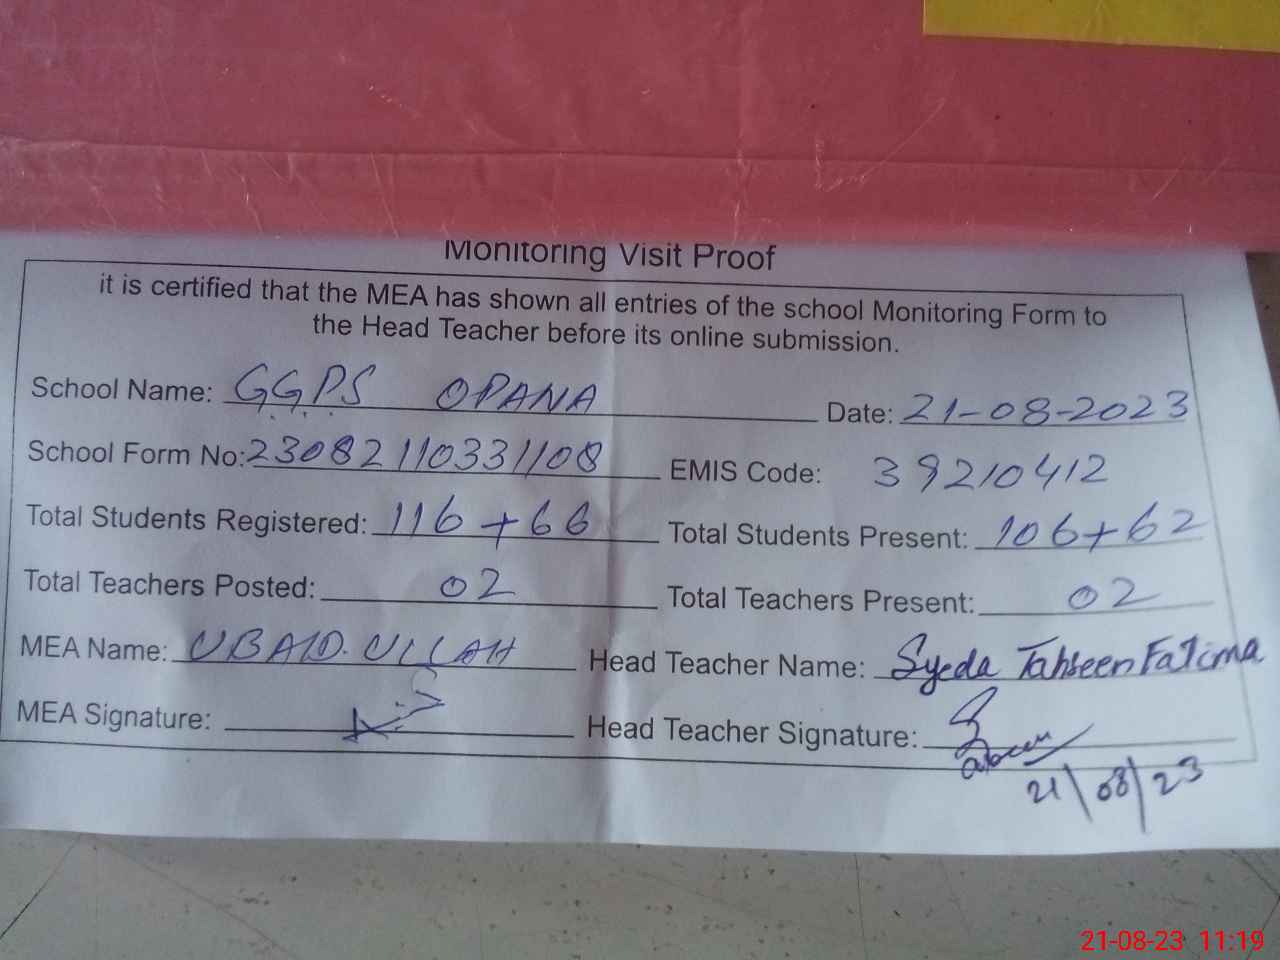 Monitoring Visit Proof
it is certified that the MEA has shown all entries of the school Monitoring Form to
the Head Teacher before its online submission.
School Name: GGPS OPANA Date: 21-08-2023
School Form No: 23082110331108 EMIS Code: 39210412
Total Students Registered: 116+66 Total Students Present: 106+62
Total Teachers Posted: 02 Total Teachers Present: 02
MEA Name: UBAID.ULLAH Head Teacher Name: Syeda Tahseen Fatima
MEA Signature: Head Teacher Signature:
21/08/23
21-08-23 11:19